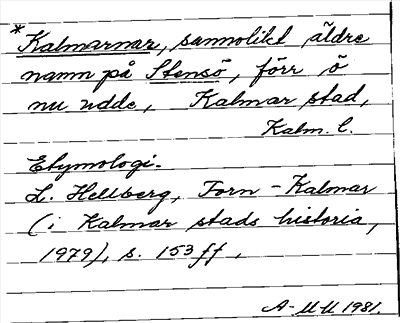 *Kalmarnar, sannolikt äldre
namn på Stensö, förr ö
nu udde, Kalmar stad,
Kalm. l.
Etymologi.
L. Hellberg, Forn-Kalmar
(i Kalmar stads historia,
1979), s. 153 ff,
A-MM 1981.